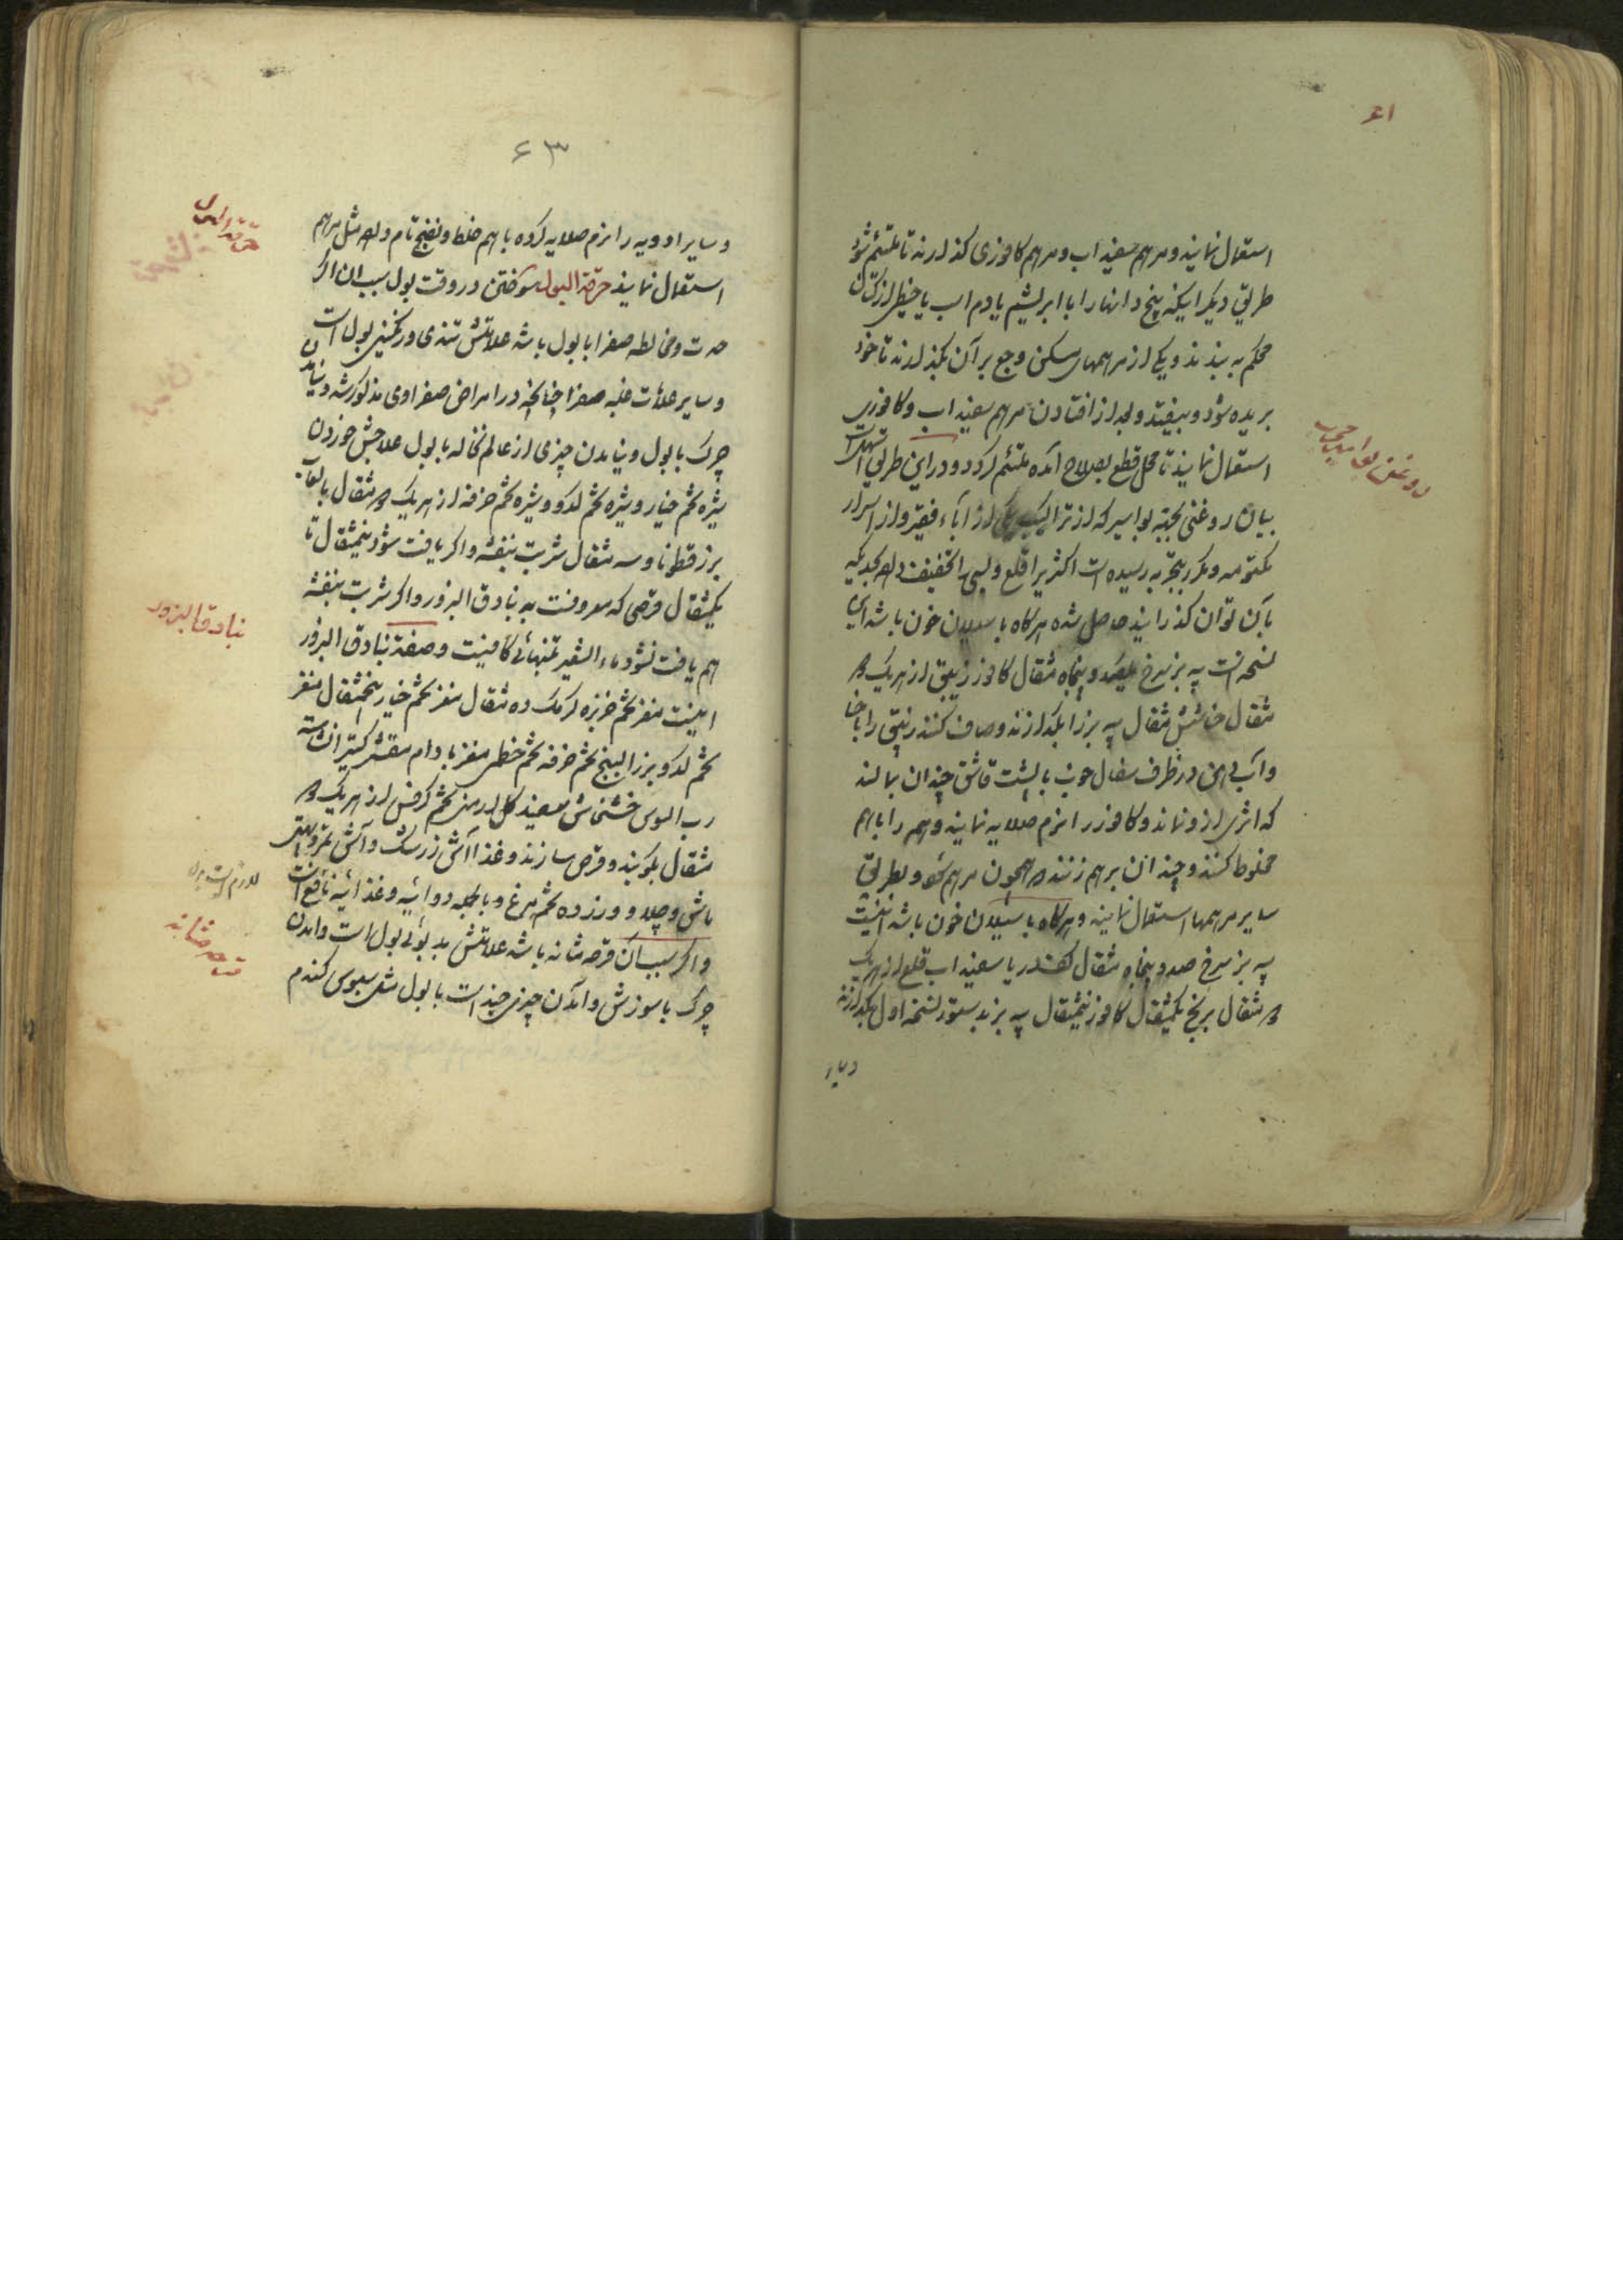 ۶۱
استعمال نمایند و مرهم سفیداب و مرهم کافوری گذارند تا ملتئم شود
طریق دیگر اینکه بیخ دانها را با ابریشم یا دم اسب یا خیطی از کتان
محکم به بندند و یکی از مرهمهای مسکن وجع بر آن بگذارند تا خود
بریده شود و بیفتد و بعد از افتادن مرهم سفیداب و کافوری
استعمال نمایند تا محل قطع بصلاح آمده ملتئم گردد و در این طریق
بیان روغنی بجهته بواسیر که از تراکیب یکی از آباء فقیر و از اسرار
مکتومه و مکرر بتجربه رسیده است اکثر یرا قلع و بسی را تخفیف داده بحدیکه
بآن توان گذرانید حاصل شده هرگاه با سیلان خون باشد این
نسخه است پیه بز سرخ یکصد و پنجاه مثقال کافور زیبق از هریک ۲
مثقال حنا شش مثقال پیه بز را بگدازند و صاف کنند زیبق را با حنا
و آب دهن در ظرف سفال خوب با پشت قاشق چندان بمالند
که اثری از و نماند و کافور را نرم صلایه نمایند و همه را باهم
مخلوط کنند و چندان برهم زنند که همچون مرهم شود و بطریق
سایر مرهمها استعمال نمایند و هرگاه با سیلان خون باشد اینست
پیه بز سرخ صد و پنجاه مثقال کف دریا سفیداب قلع از هریک
۲ مثقال برنج یکمثقال کافور نیمثقال پیه بز بدستور نسخه اول بگدازند
وسایر
روغن بواسیر مجرب
۶۳
و سایر ادویه را نرم صلایه کرده باهم خلط و نضج تام داده مثل مرهم
استعمال نمایند حرقة البول سوختن در وقت بول سبب آن اگر
حدت و مخالطه صفرا با بول باشد علامتش تندی و رنگینی بول است
و سایر علامات غلبه صفرا چنانچه در امراض صفراوی مذکور شد و نیامدن
چرک با بول و نیامدن چیزی از عالم نخاله با بول علاجش خوردن
شیره تخم خیار و شیره تخم کدو و شیره تخم خرفه از هریک ۲ مثقال با لعاب
بزرقطونا و سه مثقال شربت بنفشه و اگر یافت شود نیمثقال تا
یکمثقال قرصی که معروفست به بنادق البزور و اگر شربت بنفشه
هم یافت نشود ماء الشعیر تنهائی کافیست و صفة بنادق البزور
اینست مغز تخم خربزه گرمک ده مثقال مغز تخم خیار پنجمثقال مغز
تخم کدو بزر البنج تخم خرفه تخم خطمی مغز بادام مقشر کتیرا نشاسته
رب السوس خشخاش سفید گل ارمنی تخم کرفس از هریک ۲
مثقال بکوبند و قرص سازند و غذا آش زرشک و آش تمر و
ماش و چلاو و زرده تخم مرغ و بالجمله دوائیه و غذائیه نافع است
و اگر سبب آن قرحه مثانه باشد علامتش بد بوئی بول است و آمدن
چرک با سوزش و آمدن چیزی چند است با بول مثل سبوس گندم
حرقة البول
بنادق البزور
قرحه مثانه